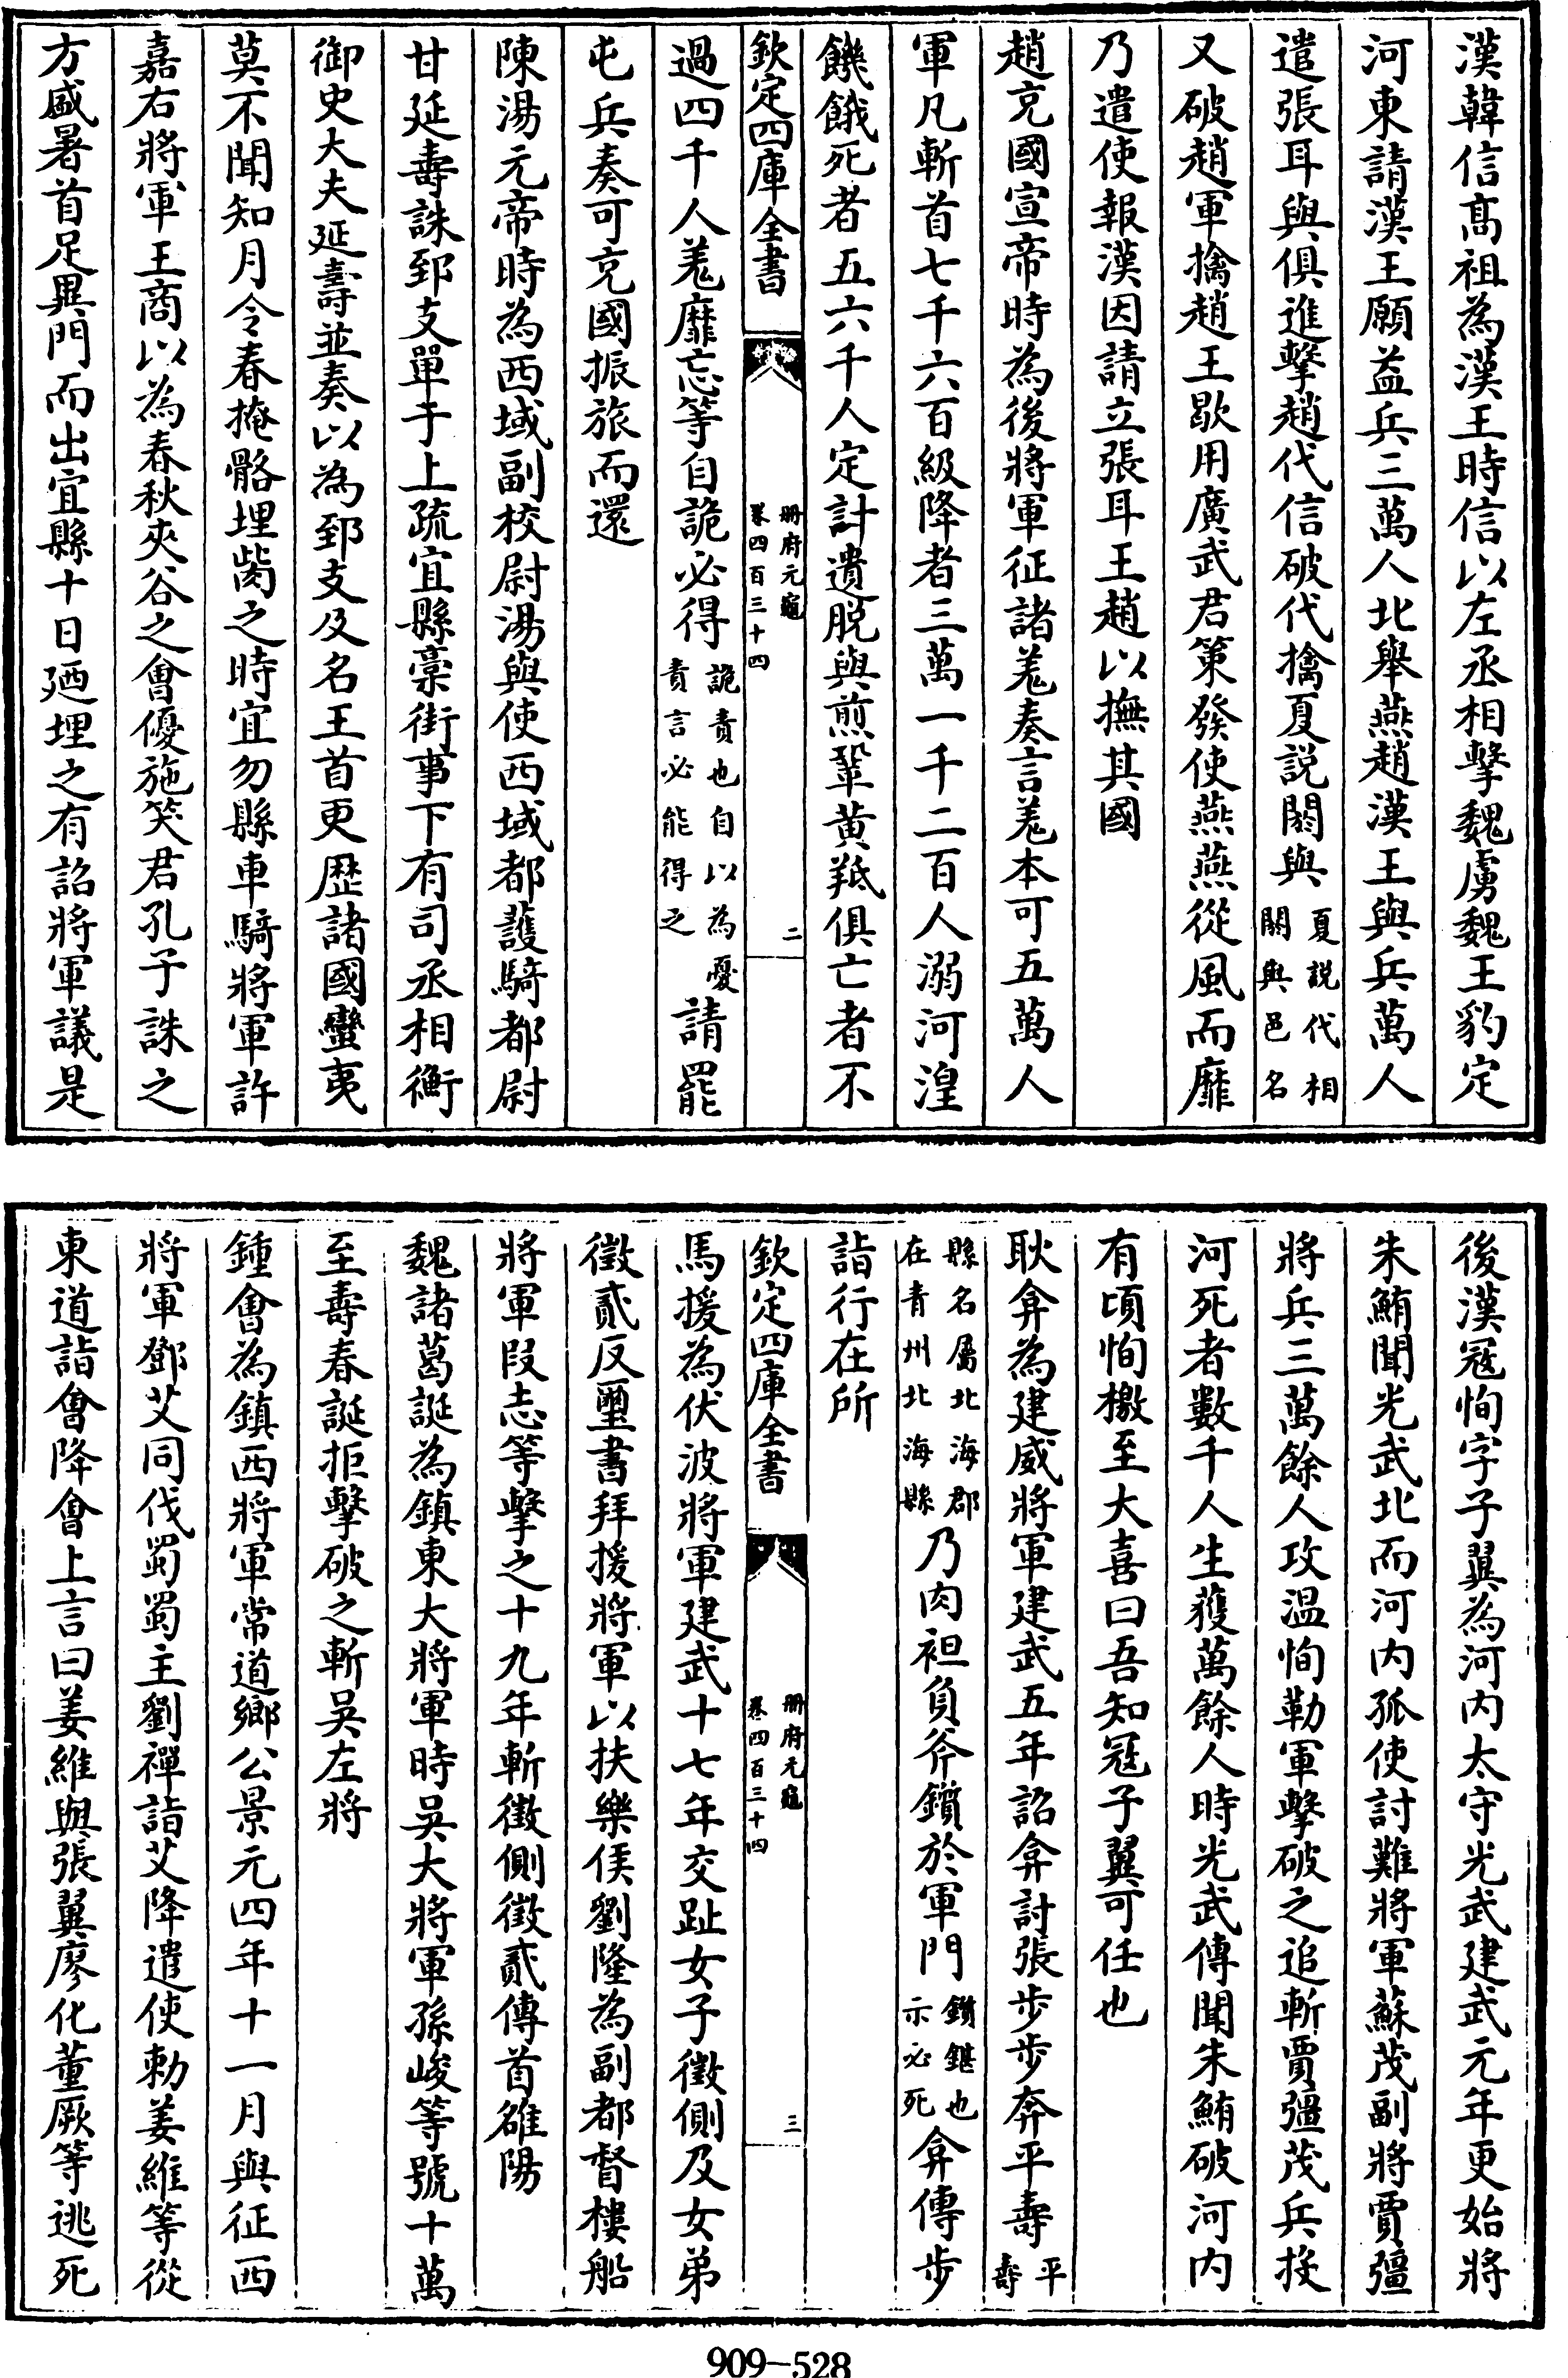 漢韓信髙祖為漢王時信以左丞相擊魏虜魏王豹定
河東請漢王願益兵三萬人北舉燕趙漢王與兵萬人
遣張耳與俱進擊趙代信破代擒夏説閼與夏説代相閼與邑名
又破趙軍擒趙王歇用廣武君策發使燕燕從風而靡
乃遣使報漢因請立張耳王趙以撫其國
趙充國宣帝時為後將軍征諸羗奏言羗本可五萬人
軍凡斬首七千六百級降者三萬一千二百人溺河湟
饑餓死者五六千人定計遺脱與煎鞏黄羝俱亡者不
欽定四庫全書
册府元龜
卷四百三十四
二
過四千人羗靡忘等自詭必得詭責也自以為憂責言必能得之請罷
屯兵奏可充國振旅而還
陳湯元帝時為西域副校尉湯與使西域都護騎都尉
甘延壽誅郅支單于上疏宜縣槀街事下有司丞相衡
御史大夫延壽並奏以為郅支及名王首更歴諸國蠻夷
莫不聞知月令春掩骼埋胔之時宜勿縣車騎將軍許
嘉右將軍王商以為春秋夾谷之會優施笑君孔子誅之
方盛暑首足異門而出宜縣十日廼埋之有詔將軍議是
後漢冦恂字子翼為河内太守光武建武元年更始將
朱鮪聞光武北而河内孤使討難將軍蘇茂副將賈彊
將兵三萬餘人攻温恂勒軍擊破之追斬賈彊茂兵投
河死者數千人生獲萬餘人時光武傳聞朱鮪破河内
有頃恂檄至大喜曰吾知冦子翼可任也
耿弇為建威將軍建武五年詔弇討張步步奔平壽平壽
縣名屬北海郡在青州北海縣乃肉袒負斧鑕於軍門鑕鍖也示必死弇傳步
詣行在所
欽定四庫全書
册府元龜
卷四百三十四
三
馬援為伏波將軍建武十七年交趾女子徵側及女弟
徵貳反璽書拜援將軍以扶樂侯劉隆為副都督樓船
將軍叚志等擊之十九年斬徵側徵貳傳首雒陽
魏諸葛誕為鎮東大將軍時吳大將軍孫峻等號十萬
至壽春誕拒擊破之斬吳左將
鍾會為鎮西將軍常道鄉公景元四年十一月與征西
將軍鄧艾同伐蜀蜀主劉禪詣艾降遣使勅姜維等從
東道詣會降會上言曰姜維與張翼廖化董厥等逃死
909-528